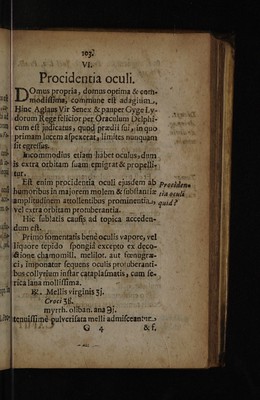 103.
VI.
Procidentia oculi.
DOmus propria, domus optima & com-
modissima, commune est adagium.
Hinc Aglaus Vir Senex & pauper Gyge Ly-
dorum Rege felicior per Oraculum Delphi-
cum est judicatus, quod prædii sui, in quo
primam lucem aspexerat, limites nunquam
sit egressus.
Incommodius etiam habet oculus, dum
is extra orbitam suam emigrat & propelli-
tur.
Est enim procidentia oculi ejusdem ab
humoribus in majorem molem & substantiæ
amplitudinem attollentibus prominentia,
vel extra orbitam protuberantia.
Prociden-
tia oculi
quid?
Hic sublatis causis ad topica acceden-
dum est.
Primo fomentatis bene oculis vapore, vel
liquore tepido spongiâ excepto ex deco-
ctione chamomill. melilot. aut fœnugræ-
ci, imponatur sequens oculis protuberanti-
bus collyrium instar cataplasmatis, cum se-
rica lana mollissima.
℞. Mellis virginis ʒj.
Croci ʒß.
myrrh. oliban. ana ℈j.
tenuissimè pulverisata melli admisceantur
G 4
& f.